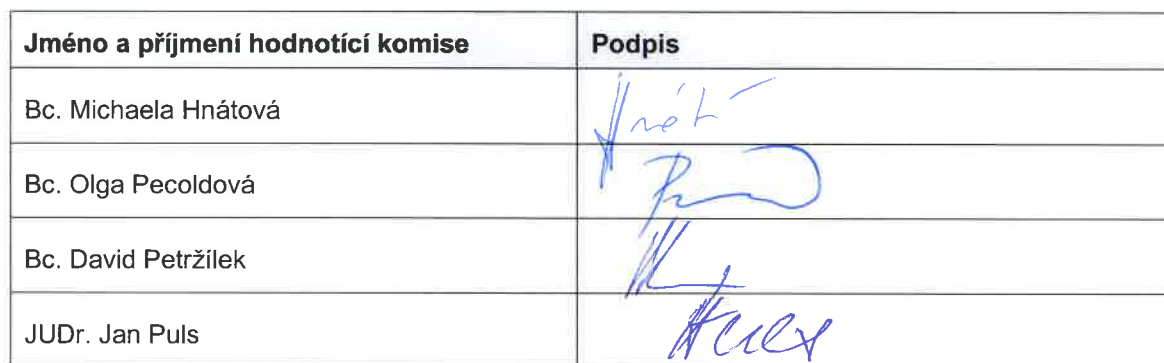 Jméno a příjmení hodnotící komise Podpis
Bc. Michaela Hnátová
Bc. Olga Pecoldová
Bc. David Petržílek
JUDr. Jan Puls